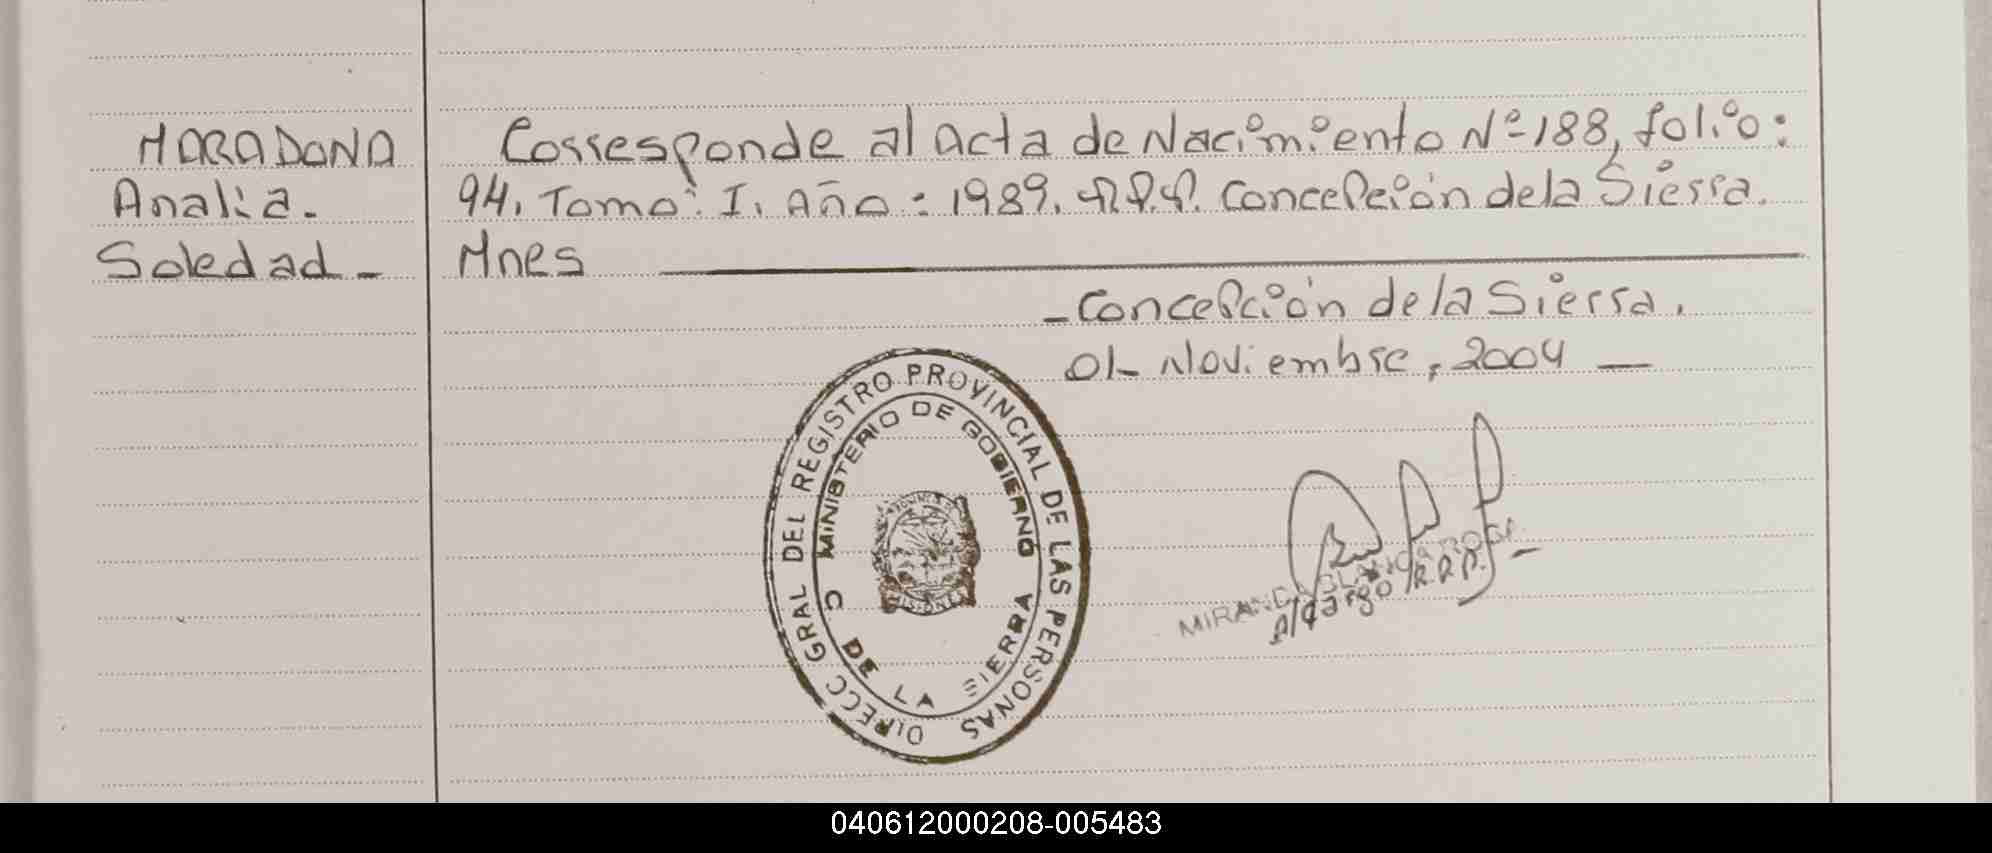 MARADONA
Analia.
Soledad -
Corresponde al acta de Nacimiento Nº 188, folio:
94. Tomo: I. Año: 1989. R.P.P. Concepción de la Sierra.
Mnes
- Concepción de la Sierra.
01- Noviembre, 2004 —
DIRECC GRAL DEL REGISTRO PROVINCIAL DE LAS PERSONAS
MINISTERIO DE GOBIERNO
C DE LA SIERRA
MISIONES
MIRANDA BLANCA ROSA
A/cargo R.P.P. -
040612000208-005483